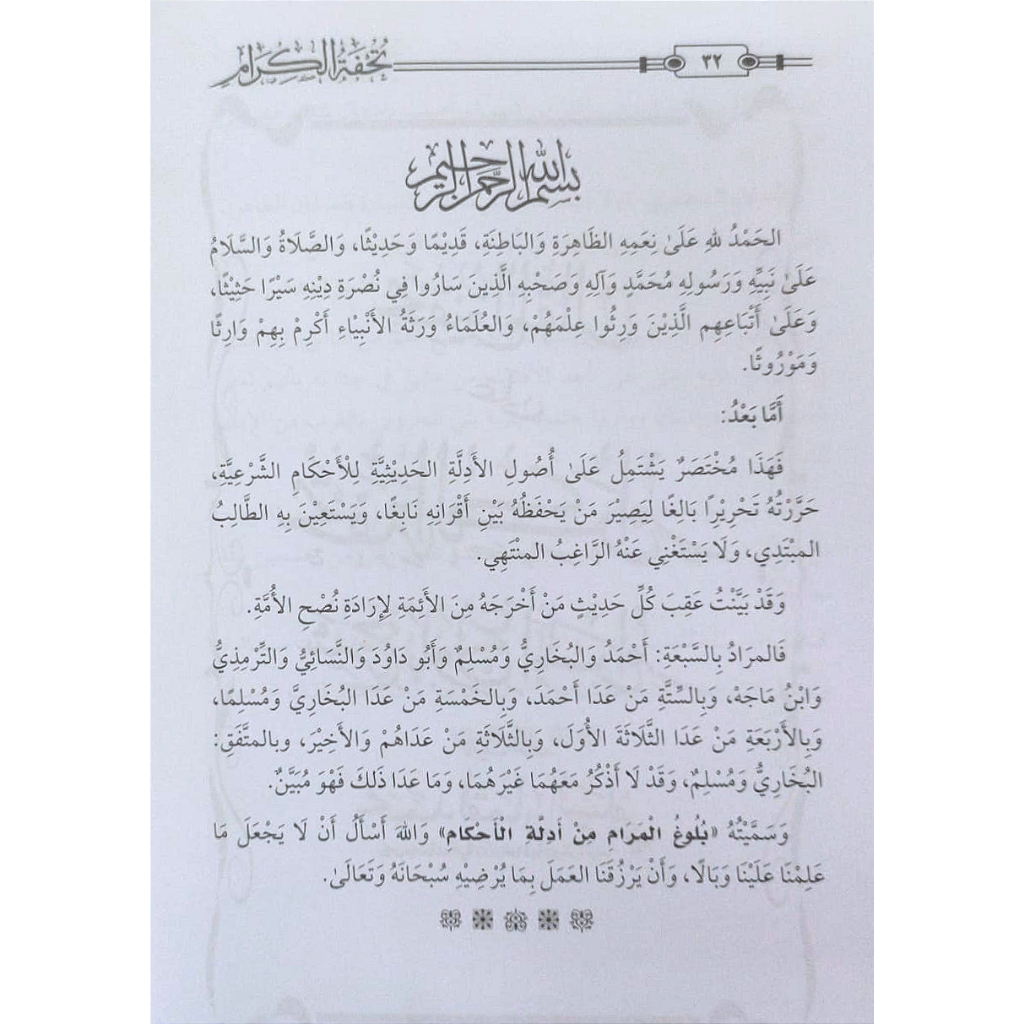 تُحْفَةُ الكِرَامِ
٣٢
بسم الله الرحمن الرحيم
الحَمْدُ للهِ عَلَىٰ نِعَمِهِ الظَاهِرَةِ وَالبَاطِنَةِ، قَدِيْمًا وَحَدِيْثًا، وَالصَّلَاةُ وَالسَّلَامُ
عَلَىٰ نَبِيِّهِ وَرَسُولِهِ مُحَمَّدٍ وَآلِهِ وَصَحْبِهِ الَّذِينَ سَارُوا فِي نُصْرَةِ دِيْنِهِ سَيْرًا حَثِيْثًا،
وَعَلَىٰ أَتْبَاعِهِم الَّذِيْنَ وَرِثُوا عِلْمَهُمْ، وَالعُلَمَاءُ وَرَثَةُ الأَنْبِيَاءِ أَكْرِمْ بِهِمْ وَارِثًا
وَمَوْرُوثًا.
أَمَّا بَعْدُ:
فَهَذَا مُخْتَصَرٌ يَشْتَمِلُ عَلَىٰ أُصُولِ الأَدِلَّةِ الحَدِيْثِيَّةِ لِلْأَحْكَامِ الشَّرْعِيَّةِ،
حَرَّرْتُهُ تَحْرِيْرًا بَالِغًا لِيَصِيْرَ مَنْ يَحْفَظُهُ بَيْنَ أَقْرَانِهِ نَابِغًا، وَيَسْتَعِيْنَ بِهِ الطَّالِبُ
المبْتَدِي، وَلَا يَسْتَغْنِي عَنْهُ الرَّاغِبُ المنْتَهِي.
وَقَدْ بَيَّنْتُ عَقِبَ كُلِّ حَدِيْثٍ مَنْ أَخْرَجَهُ مِنَ الأَئِمَةِ لِإِرَادَةِ نُصْحِ الأُمَّةِ.
فَالمرَادُ بِالسَّبْعَةِ: أَحْمَدُ وَالبُخَارِيُّ وَمُسْلِمٌ وَأَبُو دَاوُدَ وَالنَّسَائِيُّ وَالتِّرْمِذِيُّ
وَابْنُ مَاجَهْ، وَبِالسِّتَّةِ مَنْ عَدَا أَحْمَدَ، وَبِالخَمْسَةِ مَنْ عَدَا البُخَارِيَّ وَمُسْلِمًا،
وَبِالأَرْبَعَةِ مَنْ عَدَا الثَّلَاثَةَ الأُوَلَ، وَبِالثَّلَاثَةِ مَنْ عَدَاهُمْ وَالأَخِيْرَ، وبالمتَّفَقِ:
البُخَارِيُّ وَمُسْلِمٌ، وَقَدْ لَا أَذْكُرُ مَعَهُمَا غَيْرَهُمَا، وَمَا عَدَا ذَلكَ فَهْوَ مُبَيَّنٌ.
وَسَمَّيْتُهُ «بُلُوغُ الْمَرَامِ مِنْ أَدِلَّةِ الْأَحْكَامِ» وَاللهَ أَسْأَلُ أَنْ لَا يَجْعَلَ مَا
عَلِمْنَا عَلَيْنَا وَبَالًا، وَأَنْ يَرْزُقَنَا العَمَلَ بِمَا يُرْضِيْهِ سُبْحَانَهُ وَتَعَالَىٰ.